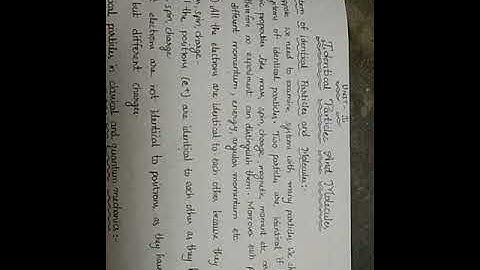 UNIT - II
Identical Particles And Molecules
System of Identical Particles and Molecules :-
we need to examine system with many particles. We
systems of identical particles. Two particles are identical if
properties like mass, spin, charge, magnetic moment etc
Therefore no experiment can distinguish them. Moreover each
different momentum, energy, angular momentum etc
All the electrons are identical to each other because they
spin, charge.
the positrons (e+) are identical to each other as they
spin, charge
electrons are not identical to positrons as they have
but different charges
particles in classical and quantum mechanics :-